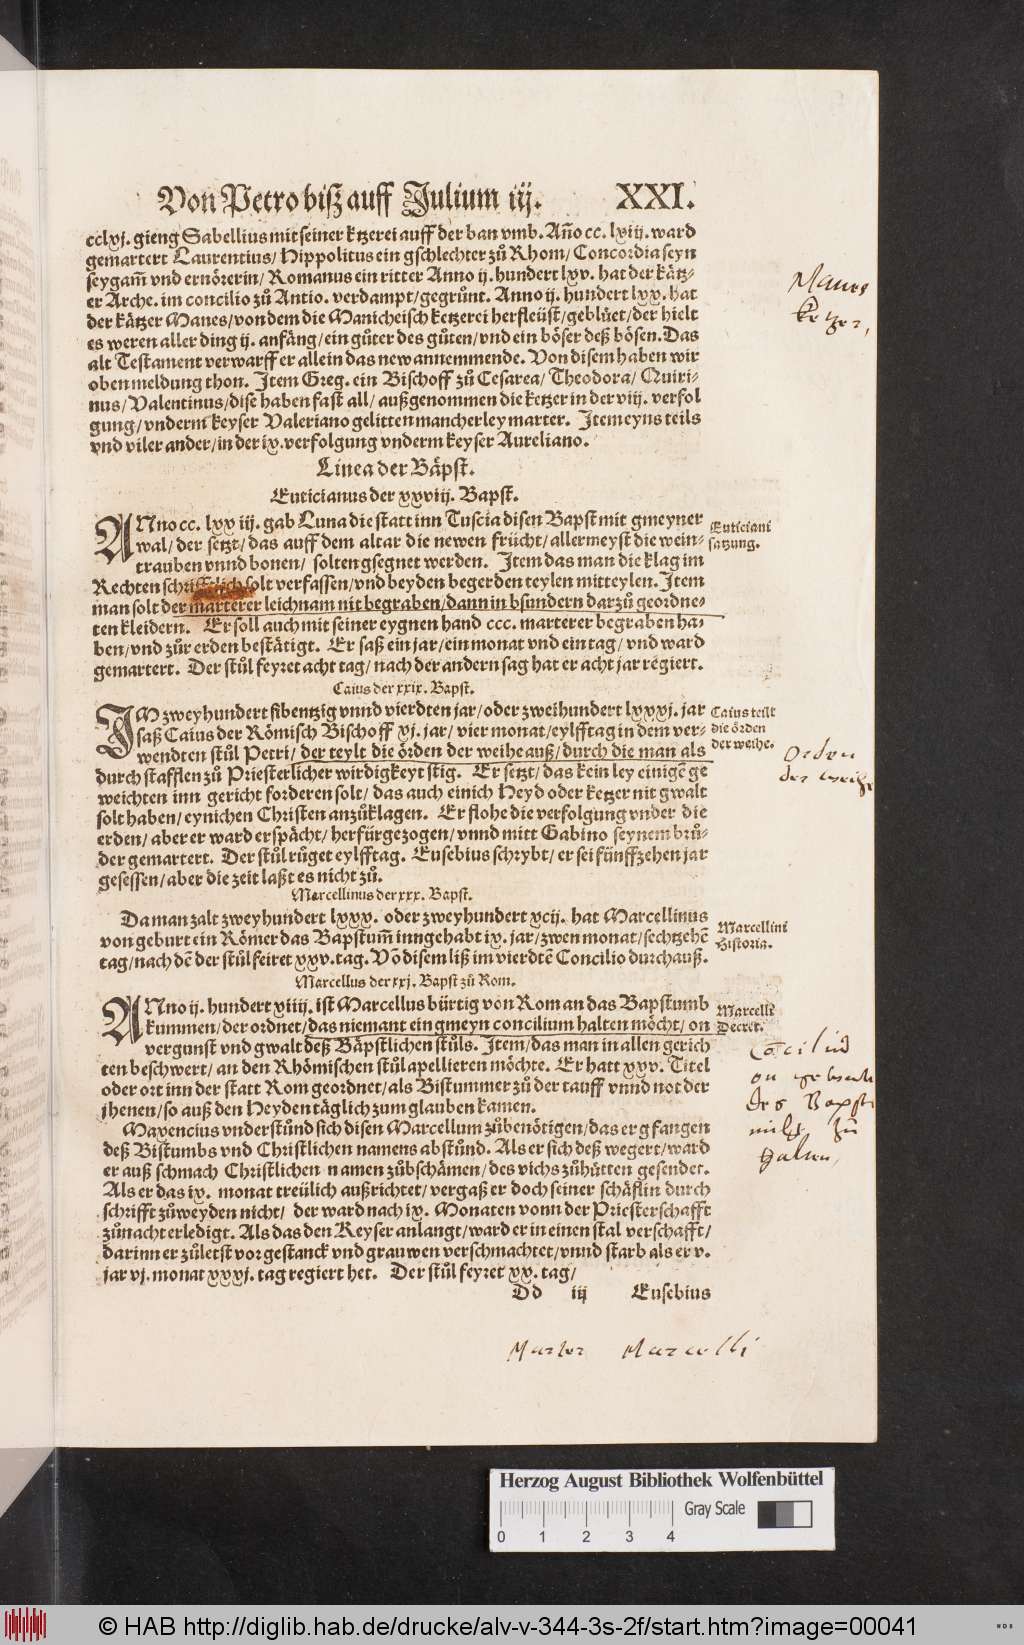 Von Petro biß auff Julium iij. XXI.
cclxj. gieng Sabellius mit seiner ketzerei auff der ban vmb. Año cc. lxiij. ward
gemartert Laurentius/ Hippolitus ein gschlechter zů Rhom/ Concordia seyn
seygam̃ vnd ernörerin/ Romanus ein ritter Anno ij. hundert lxv. hat der kätz-
er Arche. im concilio zů Antio. verdampt/ gegrůnt. Anno ij. hundert lxx. hat
der kätzer Manes/ von dem die Manicheisch ketzerei herfleüst/ geblůet/ der hielt
es weren aller ding ij. anfäng/ ein gůter des gůten/ vnd ein böser deß bösen. Das
alt Testament verwarff er allein das new annemmende. Von disem haben wir
oben meldung thon. Item Greg. ein Bischoff zů Cesarea/ Theodora/ Quiri-
nus/ Valentinus/ dise haben fast all/ außgenommen die ketzer in der viij. verfol
gung/ vnderm keyser Valeriano gelitten mancherley marter. Item eyns teils
vnd viler ander/ in der ix. verfolgung vnderm keyser Aureliano.
Manes
ketzer,
Linea der Bäpst.
Euticianus der xxviij. Bapst.
ANno cc. lxx iij. gab Luna die statt inn Tuscia disen Bapst mit gmeyner
wal/ der setzt/ das auff dem altar die newen frücht/ allermeyst die wein-
trauben vnnd bonen/ solten gsegnet werden. Item das man die klag im
Rechten schrifftlich solt verfassen/ vnd beyden begerden teylen mitteylen. Item
man solt der marterer leichnam nit begraben/ dann in bsundern darzů geordne-
ten kleidern. Er soll auch mit seiner eygnen hand ccc. marterer begraben ha-
ben/ vnd zůr erden bestätigt. Er saß ein jar/ ein monat vnd ein tag/ vnd ward
gemartert. Der stůl feyret acht tag/ nach der andern sag hat er acht jar regiert.
Euticiani
satzung.
Caius der xxix. Bapst.
IM zweyhundert sibentzig vnnd vierdten jar/ oder zweihundert lxxxj. jar
saß Caius der Römisch Bischoff xj. jar/ vier monat/ eylff tag in dem ver-
wendten stůl Petri/ der teylt die örden der weihe auß/ durch die man als
durch stafflen zů Priesterlicher wirdigkeyt stig. Er setzt/ das kein ley einigẽ ge
weichten inn gericht forderen solt/ das auch einich Heyd oder ketzer nit gwalt
solt haben/ eynichen Christen anzůklagen. Er flohe die verfolgung vnder die
erden/ aber er ward erspächt/ herfürgezogen/ vnnd mitt Gabino seynem brů-
der gemartert. Der stůl růget eylff tag. Eusebius schrybt/ er sei fünffzehen jar
gesessen/ aber die zeit laßt es nicht zů.
Caius teilt
die örden
der weihe.
Orden
der weihe
Marcellinus der xxx. Bapst.
Da man zalt zweyhundert lxxx. oder zweyhundert xcij. hat Marcellinus
von geburt ein Römer das Bapstum̃ inngehabt ix. jar/ zwen monat/ sechtzehẽ
tag/ nach dẽ der stůl feiret xxv. tag. Võ disem liß im vierdtẽ Concilio durchauß.
Marcellini
Historia.
Marcellus der xxj. Bapst zů Rom.
ANno ij. hundert xiiij. ist Marcellus bürtig von Rom an das Bapstumb
kummen/ der ordnet/ das niemant ein gmeyn concilium halten möcht/ on
vergunst vnd gwalt deß Bäpstlichen stůls. Item/ das man in allen gerich
ten beschwert/ an den Rhömischen stůl apellieren möchte. Er hatt xxv. Titel
oder ort inn der statt Rom geordnet/ als Bistummer zů der tauff vnnd not der
jhenen/ so auß den Heyden täglich zum glauben kamen.
Maxencius vnderstůnd sich disen Marcellum zůbenötigen/ das er gfangen
deß Bistumbs vnd Christlichen namens abstůnd. Als er sich deß wegert/ ward
er auß schmach Christlichen namen zůbschämen/ des vichs zůhütten gesendet.
Als er das ix. monat treülich außrichtet/ vergaß er doch seiner schäflin durch
schrifft zůweyden nicht/ der ward nach ix. Monaten vonn der Priesterschafft
zůnacht erledigt. Als das den Keyser anlangt/ ward er in einen stal verschafft/
darinn er zůletst vor gestanck vnd grauwen verschmachtet/ vnnd starb als er v.
jar vj. monat xxxj. tag regiert het. Der stůl feyret xx. tag/
Marcelli
Decret.
Concilium
on gebeut
des Bapsts
nicht zu
halten,
Dd iij Eusebius
Marter Marcelli
Herzog August Bibliothek Wolfenbüttel
Gray Scale
0 1 2 3 4
© HAB http://diglib.hab.de/drucke/alv-v-344-3s-2f/start.htm?image=00041